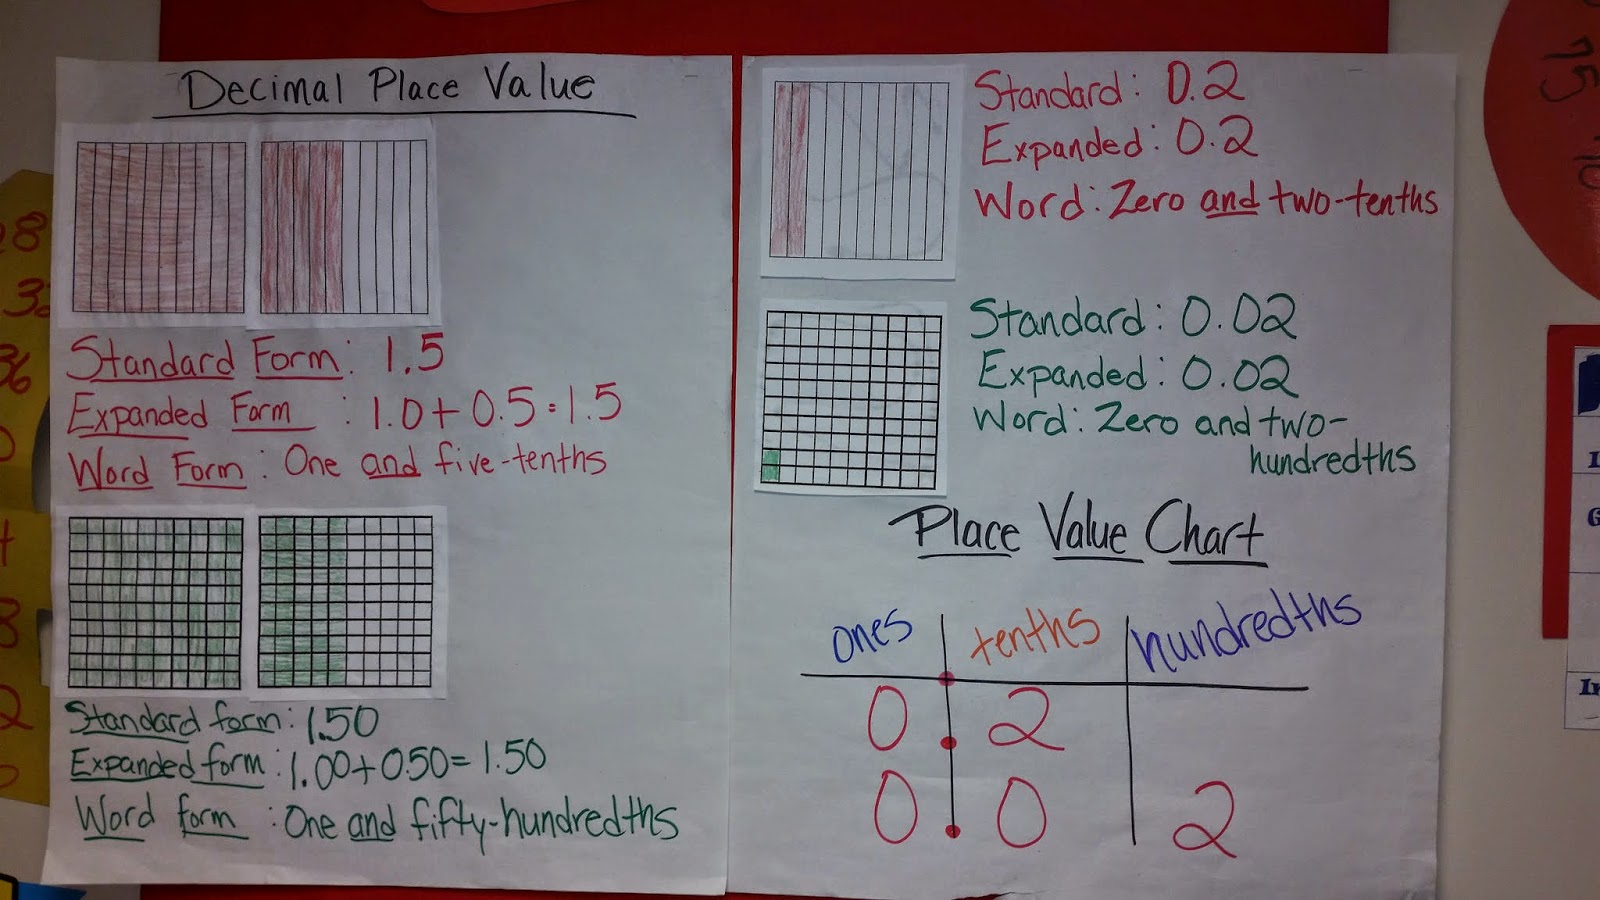 Decimal Place Value
Standard Form: 1.5
Expanded Form : 1.0 + 0.5 = 1.5
Word Form : One and five-tenths
Standard form: 1.50
Expanded form: 1.00+0.50= 1.50
Word form : One and fifty-hundredths
Standard: 0.2
Expanded: 0.2
Word: Zero and two-tenths
Standard: 0.02
Expanded: 0.02
Word: Zero and two-
hundredths
Place Value Chart
ones tenths hundredths
0 . 2
0 . 0 2
8
32
36
8
2
75